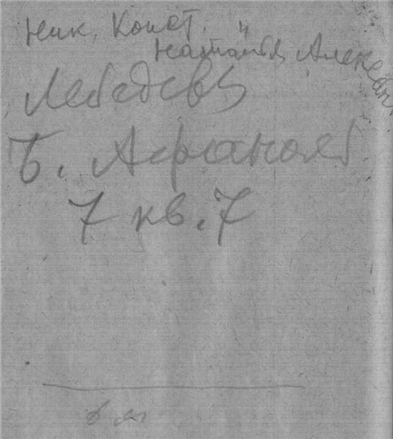 Ник. Конст. и
Наталья Александ
Лебедевы
Б. Афанас
7 кв. 7